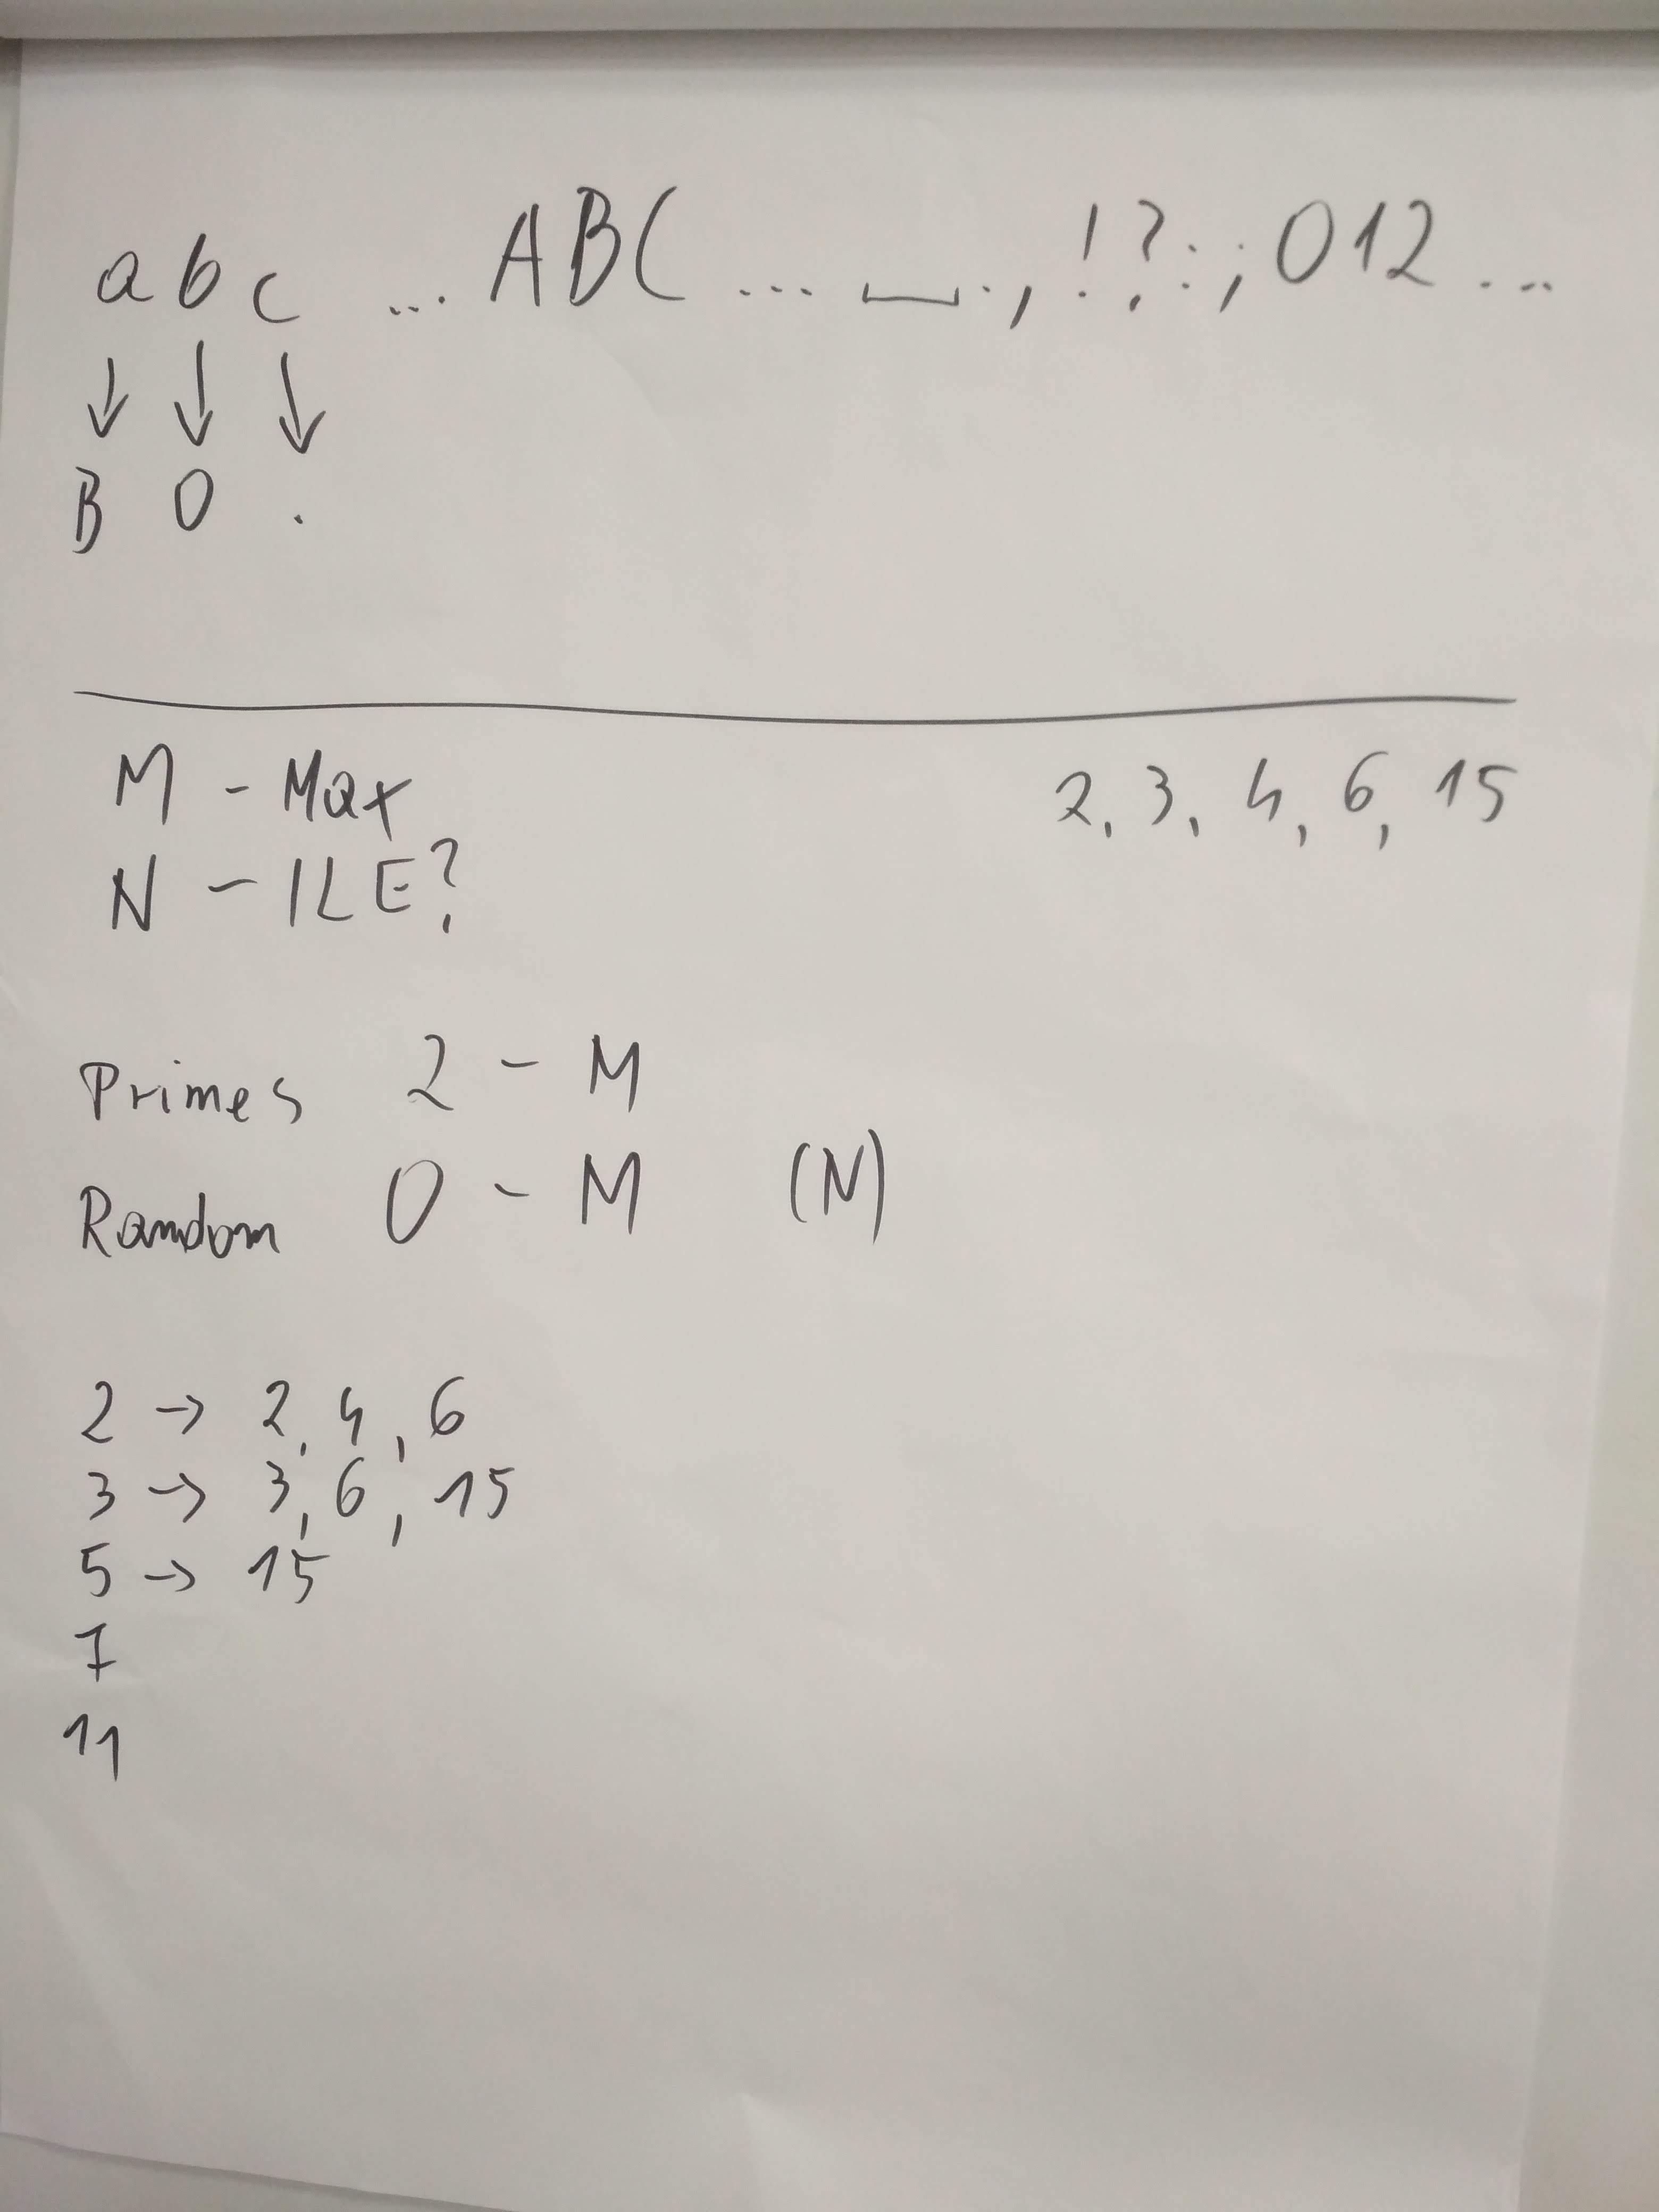 a b c ... A B C ... ⎵ . , ! ? : ; 0 1 2 ...
↓ ↓ ↓
B 0 .
M - Max 2, 3, 4, 6, 15
N - ILE?
Primes 2 - M
Random 0 - M (N)
2 → 2, 4, 6
3 → 3, 6, 15
5 → 15
7
11